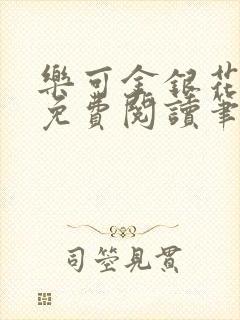 樂可金銀花
免費閱讀筆
司箜見貫